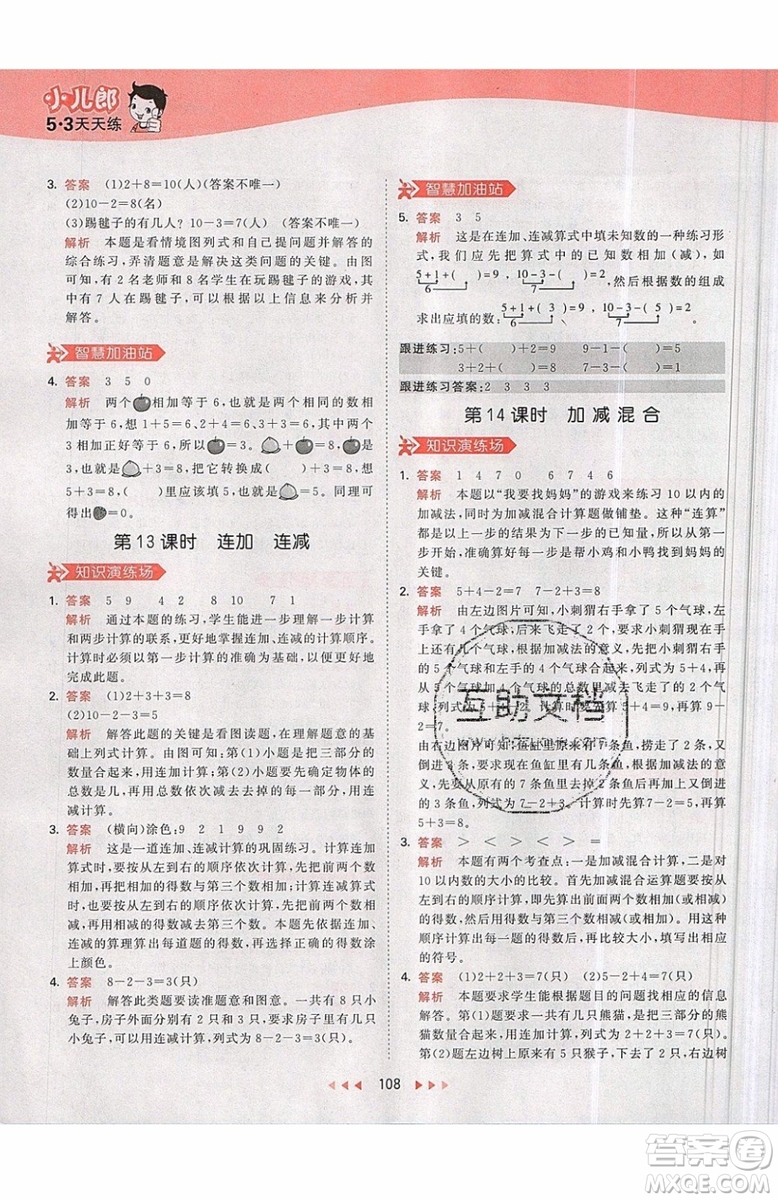 小儿郎
5·3天天练
3. 答案 (1)2+8=10(人)(答案不唯一)
(2)10-2=8(名)
(3)踢毽子的有几人? 10-3=7(人) (答案不唯一)
解析 本题是看情境图列式和自己提问题并解答的
综合练习,弄清题意是解决这类问题的关键。由图
可知,有2名老师和8名学生在玩踢毽子的游戏,其
中有7人在踢毽子,可以根据以上信息来分析并
解答。
智慧加油站
4. 答案 3 5 0
解析 两个相加等于6,也就是两个相同的数相
加等于6,想1+5=6,2+4=6,3+3=6,只有
3+3=6是两个相同的数相加等于6,所以=3。
因为+3=8,把它转换成3+( )=8,想3+
5=8,所以( )里应该填5,=5。同理可
得出=0。
第13课时 连加 连减
知识演练场
1. 答案 5 9 4 2 8 10 7 1
解析 通过本题的练习,学生能进一步理解一步计算
和两步计算的联系,更好地掌握连加、连减的计算顺序。
计算时必须以第一步计算正确为基础,以便更好地
完成此题。
2. 答案 (1)2+3+3=8
(2)10-2-3=5
解析 解答此题的关键是看图读题,在理解题意的基
础上列式计算。第(1)小题是把三部分的
数量合起来,用连加计算。第(2)小题先确定物体的
总数是几,再连续去掉两部分的数量,用连减
计算。
3. 答案 (横向)涂色:9 2 1 9 9 2
解析 这是一道连加、连减的巩固练习。计算连加
算式时,要按从左到右的顺序依次计算,先把前两个数
相加,再把相加的得数与第三个数相加。计算连减算式
时,也要按从左到右的顺序依次计算,先把前两个数相
减,再把相减的得数与第三个数相减。本题先依据连加、
连减的算理算出每道题的得数,再根据要求给得数涂
上颜色。
4. 答案 8-2-3=3(只)
解析 解答此类题要读准题意和图意。一共有8只小
兔子,房子外面分别有2只和3只,要求房子里面有几
只,从总数里连续去掉外面的2只和3只,用连减计算,
列式为8-2-3=3(只)。
智慧加油站
5. 答案 3 5
解析 这是在连加、连减算式中填未知数的一种练习形
式,我们应先把算式中的已知数相加(减),如
5+1+( )=9,10-3-( )=2,然后根据数的组成
6 7
求出应填的数:5+1+( )=9,10-3-( )=2。
6 7
跟进练习:5+( )+2=9 9-1-( )=5
3+( )+1=7 8-2-( )=3
跟进练习答案:2 3 3 3
第14课时 加减混合
知识演练场
1. 答案 1 4 7 0 6 7 4 6
解析 本题以“我要找妈妈”的游戏来练习10以内的
加减法,同时为加减混合计算题做铺垫。这样的“连算”
是以上一步的结果为下一步中的一个已知数,所以正
确计算出每一步的结果是帮助小鸡和小鸭找到妈妈的
关键。
2. 答案 5+4-2=7 7-2+3=8
解析 由左边图片可知,小刺猬右手拿了5个气球,左
手拿了4个气球,后来飞了2个气球,要求还剩几个气
球,先把右手的5个气球和左手的4个气球合起来,列式为5+4,
2=7。
由右边图片可知,鱼缸里原来有7条鱼,捞走了2条鱼,
又放进3条鱼,要求现在鱼缸里有几条鱼,根据加减法的
意义,先要从原有的7条鱼里去掉2条,再加上后放进
的3条鱼,列式为7-2+3。计算时先算7-2=5,再算
5+3=8。
3. 答案 > < > < > =
解析 本题有两个考查点:一是加减混合计算,二是对
10以内数的大小的比较。首先加减混合运算题要从左
到右的顺序计算,即先算出前面两个数相加(或相减)的
得数,再用这个得数与第三个数相减(或相加)。这样按
照顺序计算出每题最后的得数,再进行大小比较,填上正确
的符号。
4. 答案 (1)2+2+3=7(只) (2)5-2+4=7(只)
解析 本题要求学生能根据题目的问题找相应的信息
解答。第(1)题要求一共有几只熊猫,就是把三部分的熊
猫数量合起来,用连加计算,列式为2+2+3=7(只)。
第(2)题左边树上原来有5只猴子,下去2只,右边树上
108
互助文档
答案圈
MXQE.COM